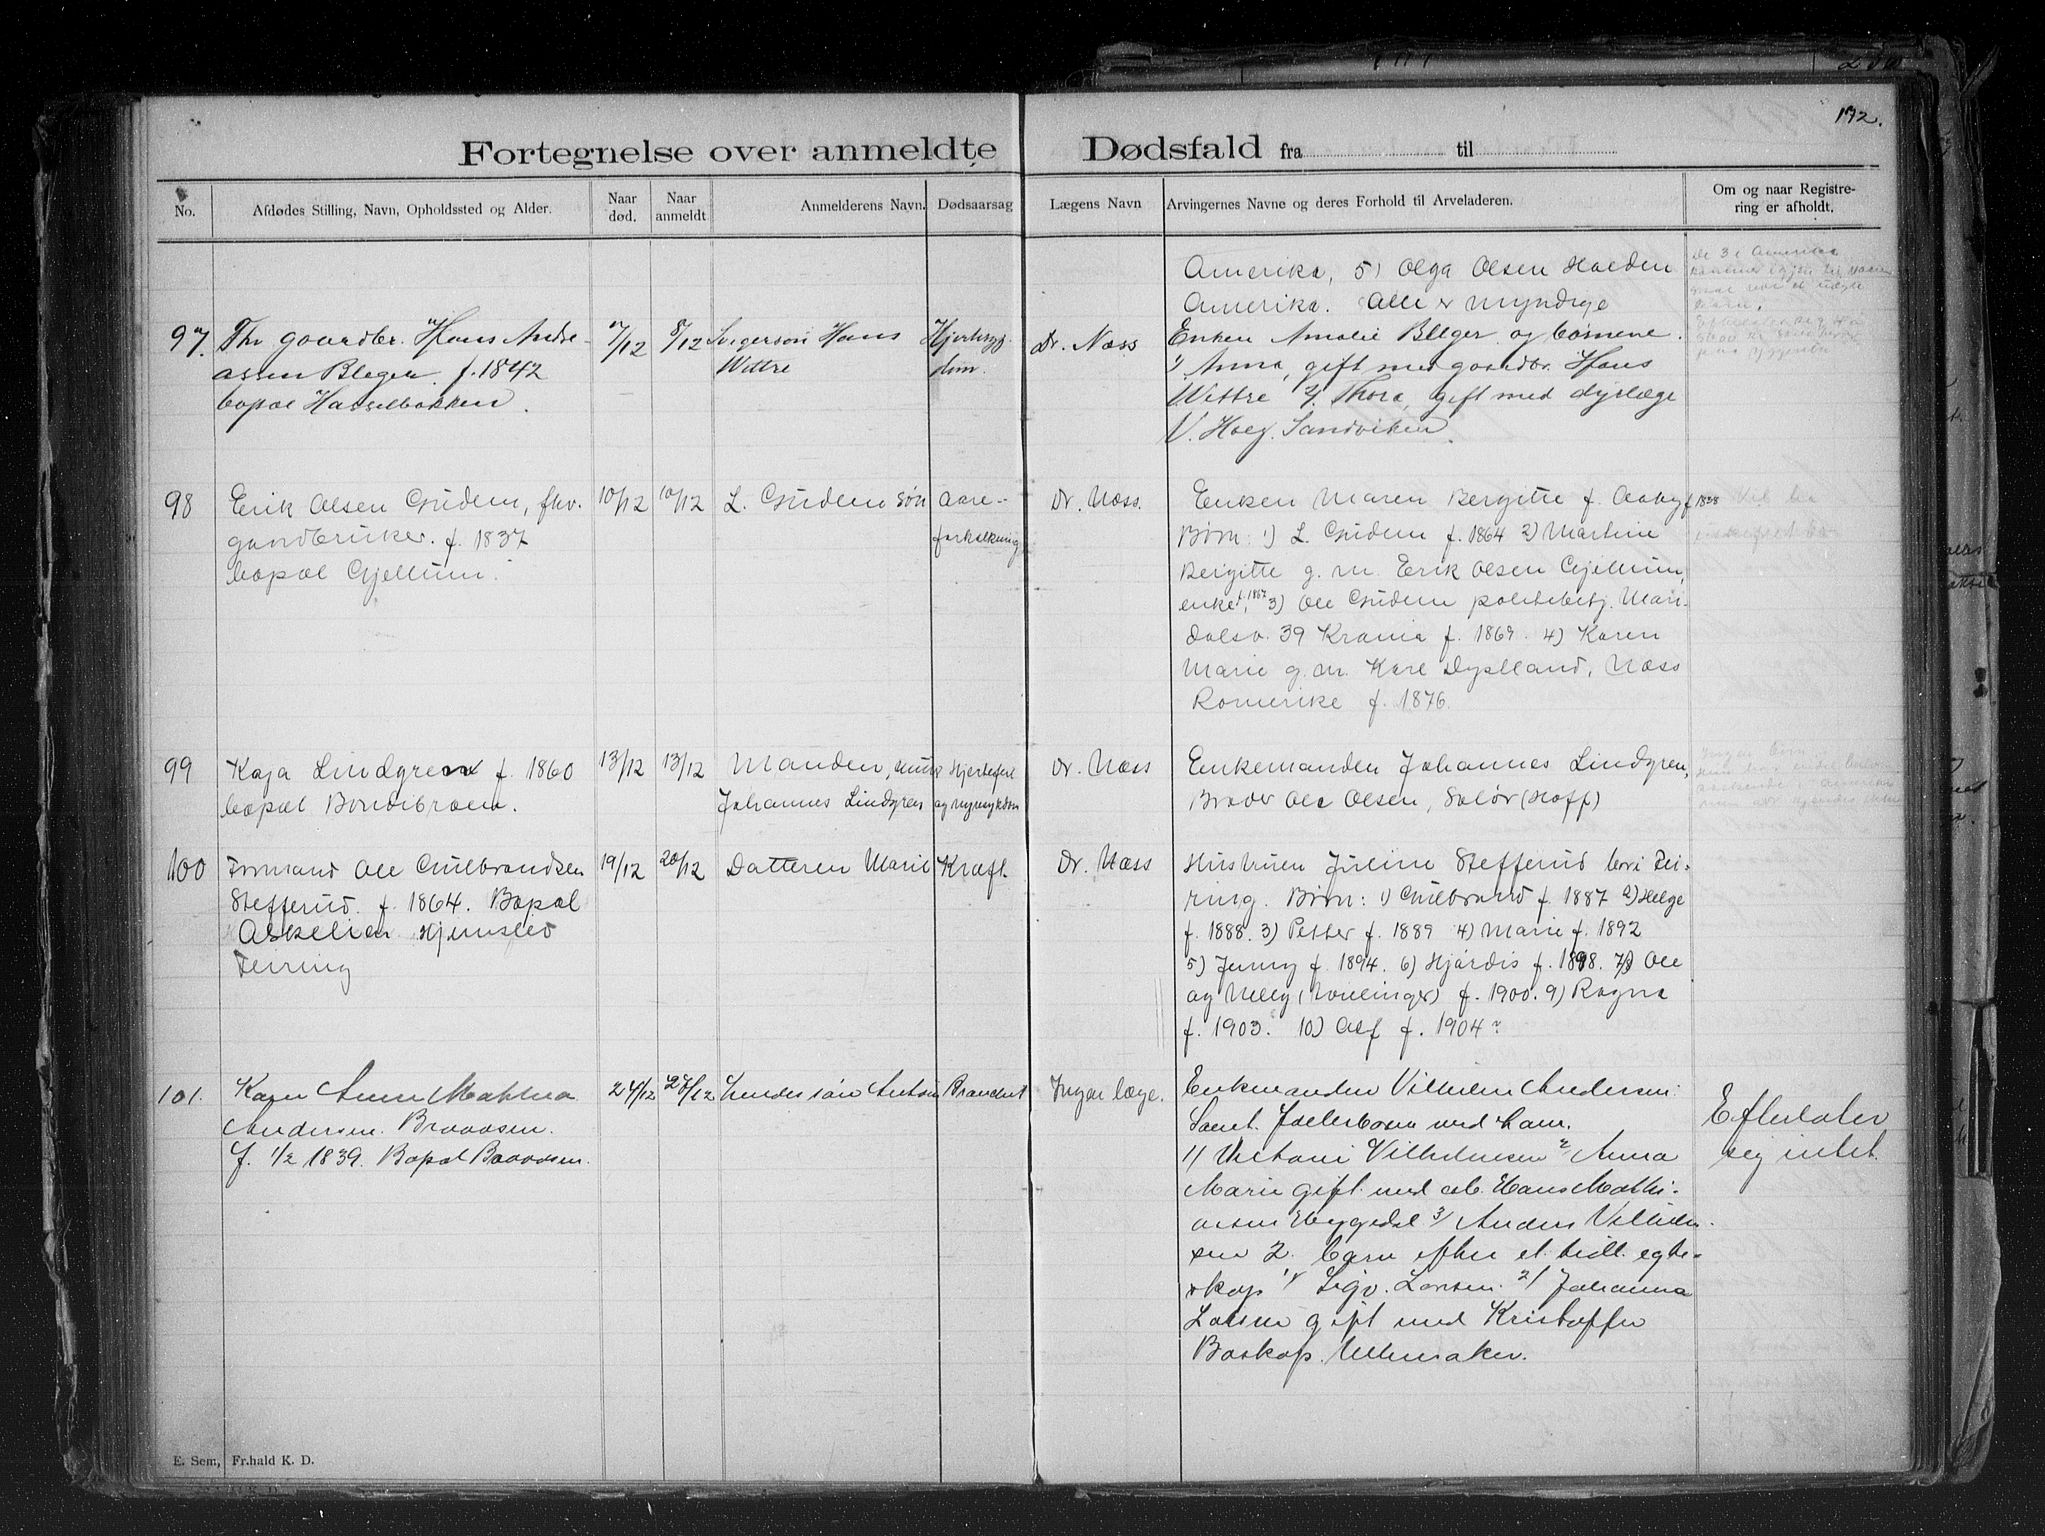 192.
Fortegnelse over anmeldte Dødsfald fra til
No.
Afdødes Stilling, Navn, Opholdssted og Alder.
Naar død.
Naar anmeldt
Anmelderens Navn.
Dødsaarsag
Lægens Navn
Arvingernes Navne og deres Forhold til Arveladeren.
Om og naar Registre-
ring er afholdt.
Amerika, 5) Olga Olsen Halden
Amerika. Alle er myndige
De 3 i Amerika
97. Fhv gaardbr. Hans Andre-
assen Bleger. f. 1842
bopæl Hasselbakken.
7/12
8/12
Svigersøn Hans
Wettre
Dr. Næss
Enken Amalie Bleger og børnene.
1) Anna, gift med gaardbr. Hans
Wettre 2) Thora, gift med dyrlæge
V. Hoeg. Sandviken.
98
Erik Olsen Gudem, fhv.
gaardbruker. f. 1837
bopæl Gjellum.
10/12
10/12
L. Gudem søn
Aare-
forkalkning
Dr. Næss.
Enken Maren Bergitte f. Aaby f 1838
Børn: 1) L. Gudem f. 1864 2) Martine
Bergitte g. m. Erik Olsen Gjellum,
enke, f. 1867 3) Ole Gudem politibetj. Mari-
dalsv. 39 Krania f. 1869. 4) Karen
Marie g. m. Karl Dyslland, Næss
Romerike f. 1876.
99
Kaja Lindgren f. 1860
bopæl Bondibraaten.
13/12
13/12
Manden, mur
Johannes Lindgren
Hjertefeil
Dr. Næss
Enkemanden Johannes Lindgren,
Broder Ole Olsen, Solør (Hoff)
100
Formand Ole Gulbrandsen
Stefferud. f. 1864. Bopæl
Askelien Hjemsted
Feiring
19/12
20/12
Datteren Marie
Kræft.
Dr. Næss
Hustruen Juline Stefferud bor i Fei-
ring. Børn: 1) Gulbrand f. 1887 2) Helge
f. 1888. 3) Petter f. 1889 4) Marie f. 1892
5) Jenny f. 1894. 6) Hjørdis f. 1898. 7/8 Ole
og Nelly (tvillinger) f. 1900. 9) Ragna
f. 1903. 10) Alf f. 1904?
101.
Karen Anne Mathea
Andersen. Braadsen.
f. 1/2 1839. Bopæl Braadsen.
24/12
28/12
hendes søn Anton
Brandsut
Ingen læge.
Enkemanden Vilhelm Andersen
Samt. fællesbarn med ham.
1) Anton Vilhelmsen 2) Anna
Marie gift med arb. Hans Mathi-
asen Heggedal 3) Anders Vilhelm-
sen 2 barn efter et tidl. egte-
skap 1) Sigv. Larsen. 2) Johanna
Larsen gift med Kristoffer
Baskop. Ullernaker.
Efterlater
sig intet.
E. Sem, Fr.hald K. D.